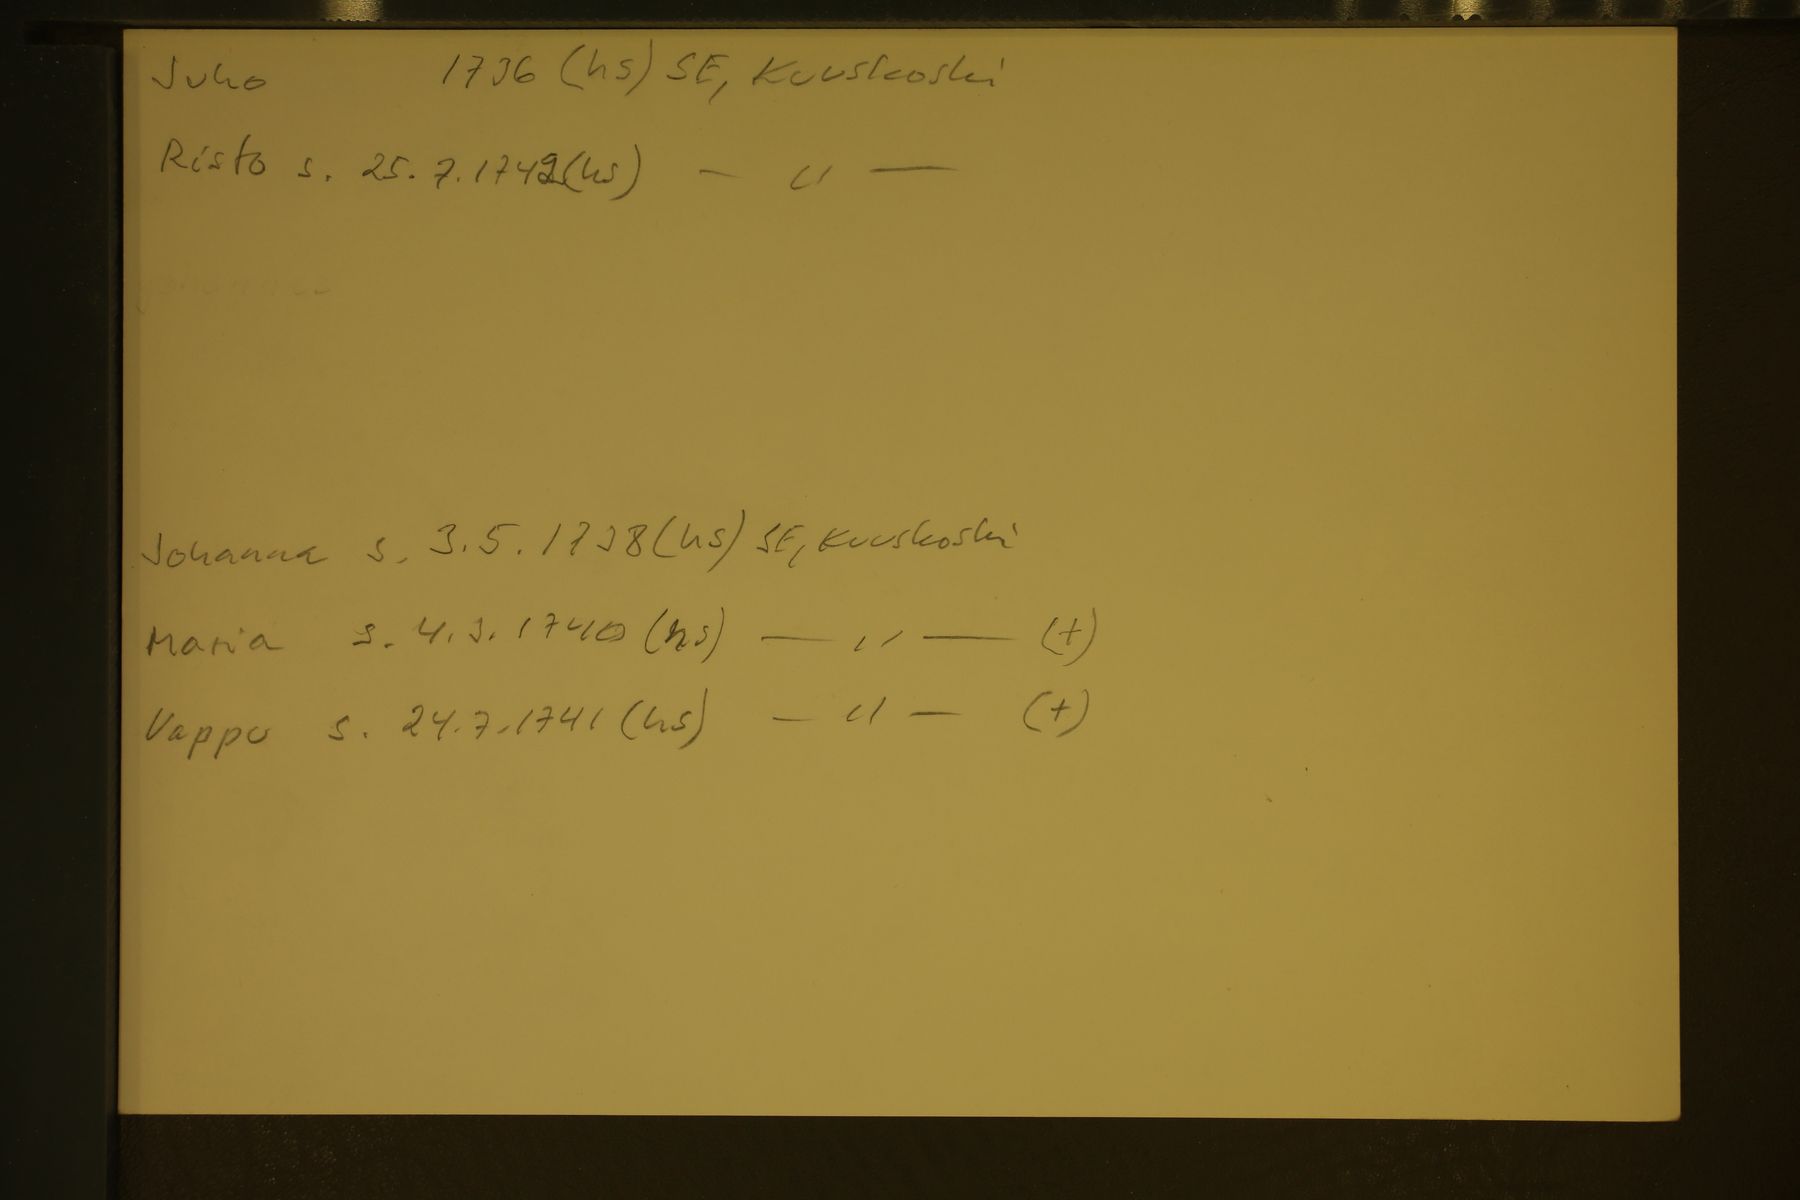 Juho 1736 (hs) SE, Kuuskoski
Risto s. 25.7.1742 (hs) — " —
Johanna s. 3.5.1738 (hs) SE, Kuuskoski
Maria s. 4.3.1740 (hs) — " — (+)
Vappu s. 24.7.1741 (hs) — " — (+)